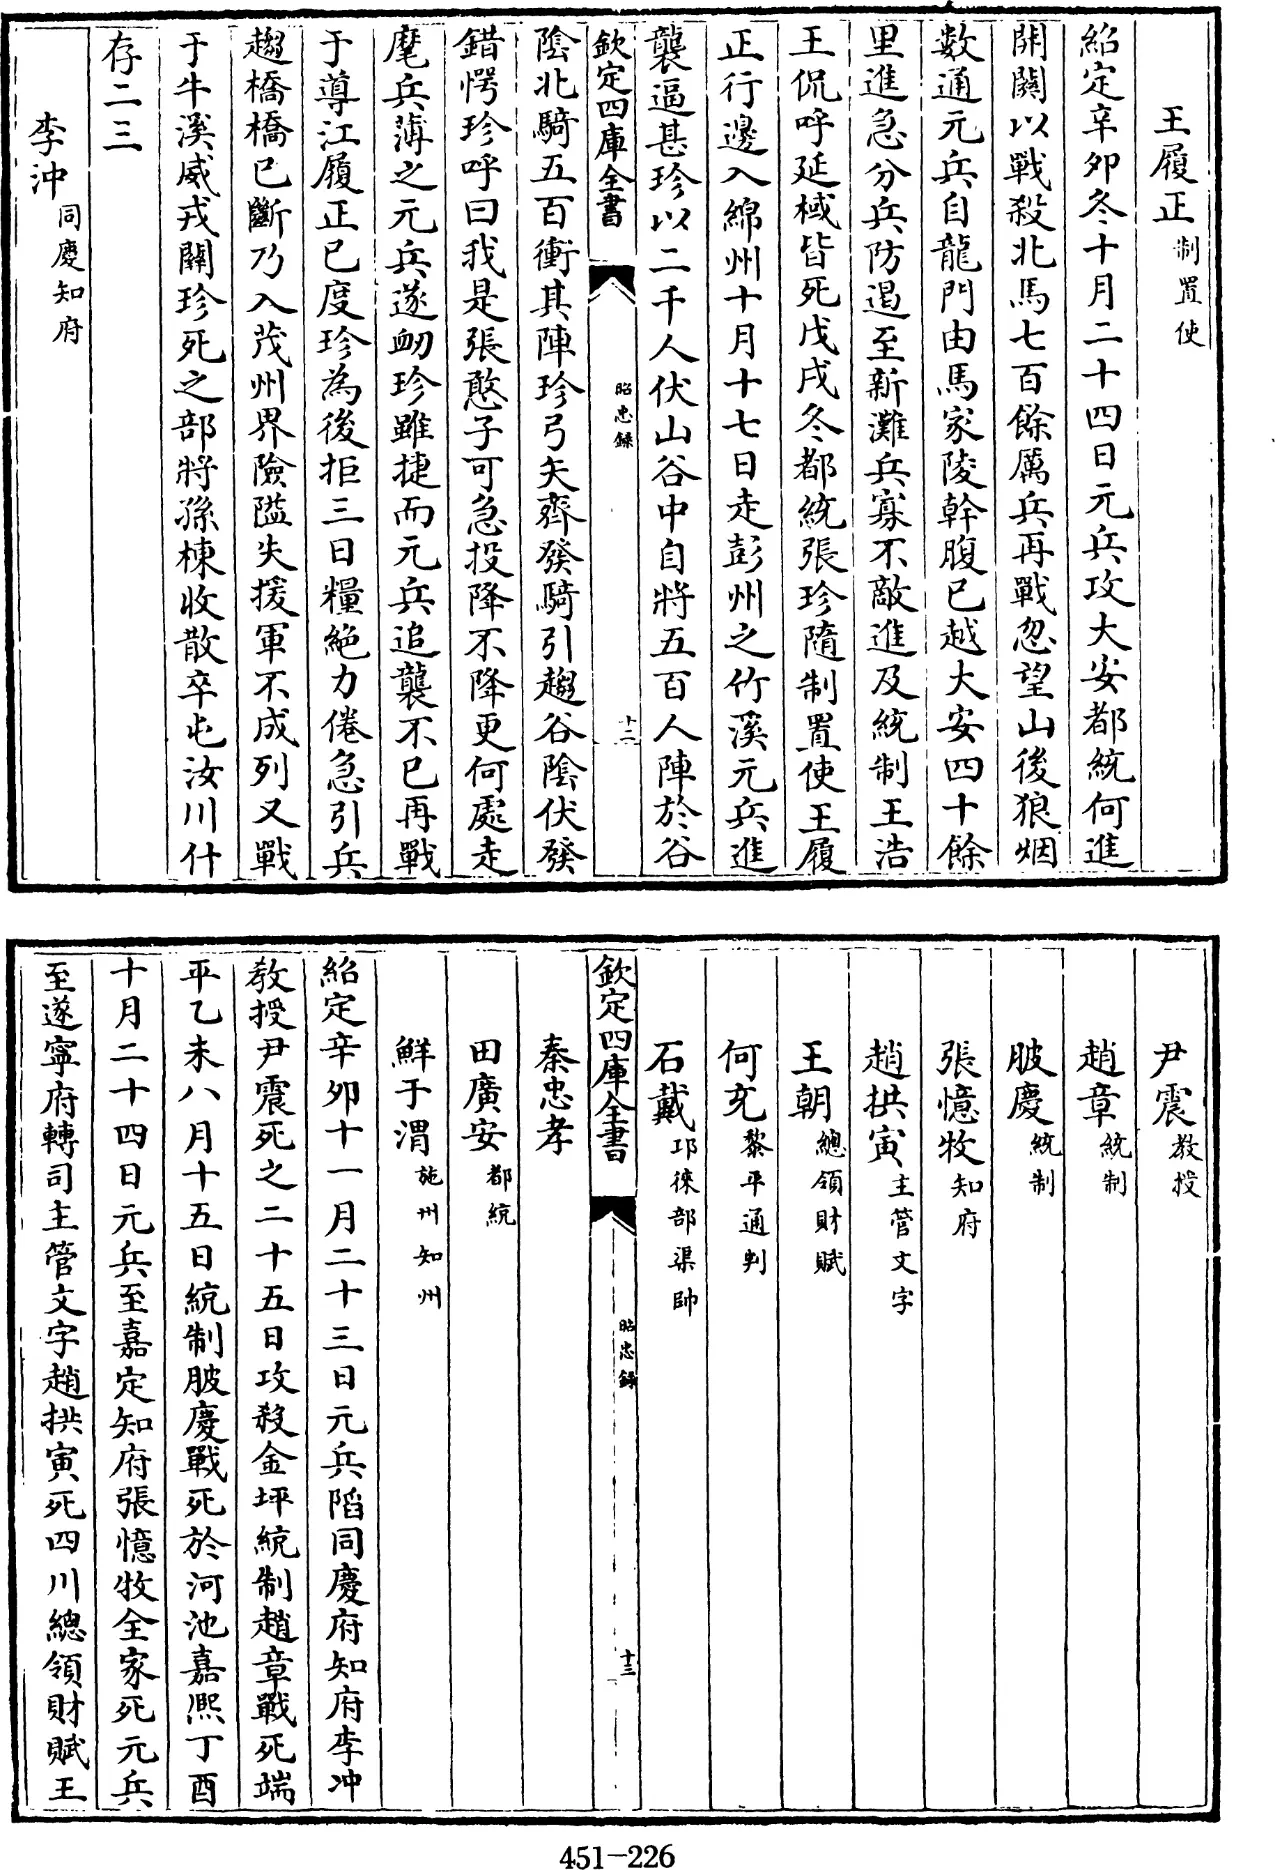 王履正制置使
紹定辛卯冬十月二十四日元兵攻大安都統何進
開闗以戰殺北馬七百餘厲兵再戰忽望山後狼烟
数通元兵自龍門由馬家陵幹腹已越大安四十餘
里進急分兵防遏至新灘兵寡不敵進及統制王浩
王侃呼延棫皆死戊戌冬都統張珍隨制置使王履
正行邊入綿州十月十七日走彭州之竹溪元兵進
襲逼甚珍以二千人伏山谷中自將五百人陣於谷
欽定四庫全書
昭忠錄
十二
陰北騎五百衝其陣珍弓矢齊發騎引趨谷陰伏發
錯愕珍呼曰我是張憨子可急投降不降更何處走
麾兵薄之元兵遂衂珍雖捷而元兵追襲不已再戰
于導江履正已度珍為後拒三日糧絶力倦急引兵
趨橋橋已斷乃入茂州界險隘失援軍不成列又戰
于牛溪威戎關珍死之部將孫棟收散卒屯汶川什
存二三
李沖同慶知府
尹震教授
趙章統制
䏢慶統制
張憶牧知府
趙拱寅主管文字
王朝總領財賦
何充黎平通判
石戴邛徠部渠帥
欽定四庫全書
昭忠錄
十三
秦忠孝
田廣安都統
鮮于渭施州知州
紹定辛卯十一月二十三日元兵䧟同慶府知府李冲
教授尹震死之二十五日攻殺金坪統制趙章戰死端
平乙未八月十五日統制䏢慶戰死於河池嘉熙丁酉
十月二十四日元兵至嘉定知府張憶牧全家死元兵
至遂寧府轉司主管文字趙拱寅死四川總領財賦王
451-226